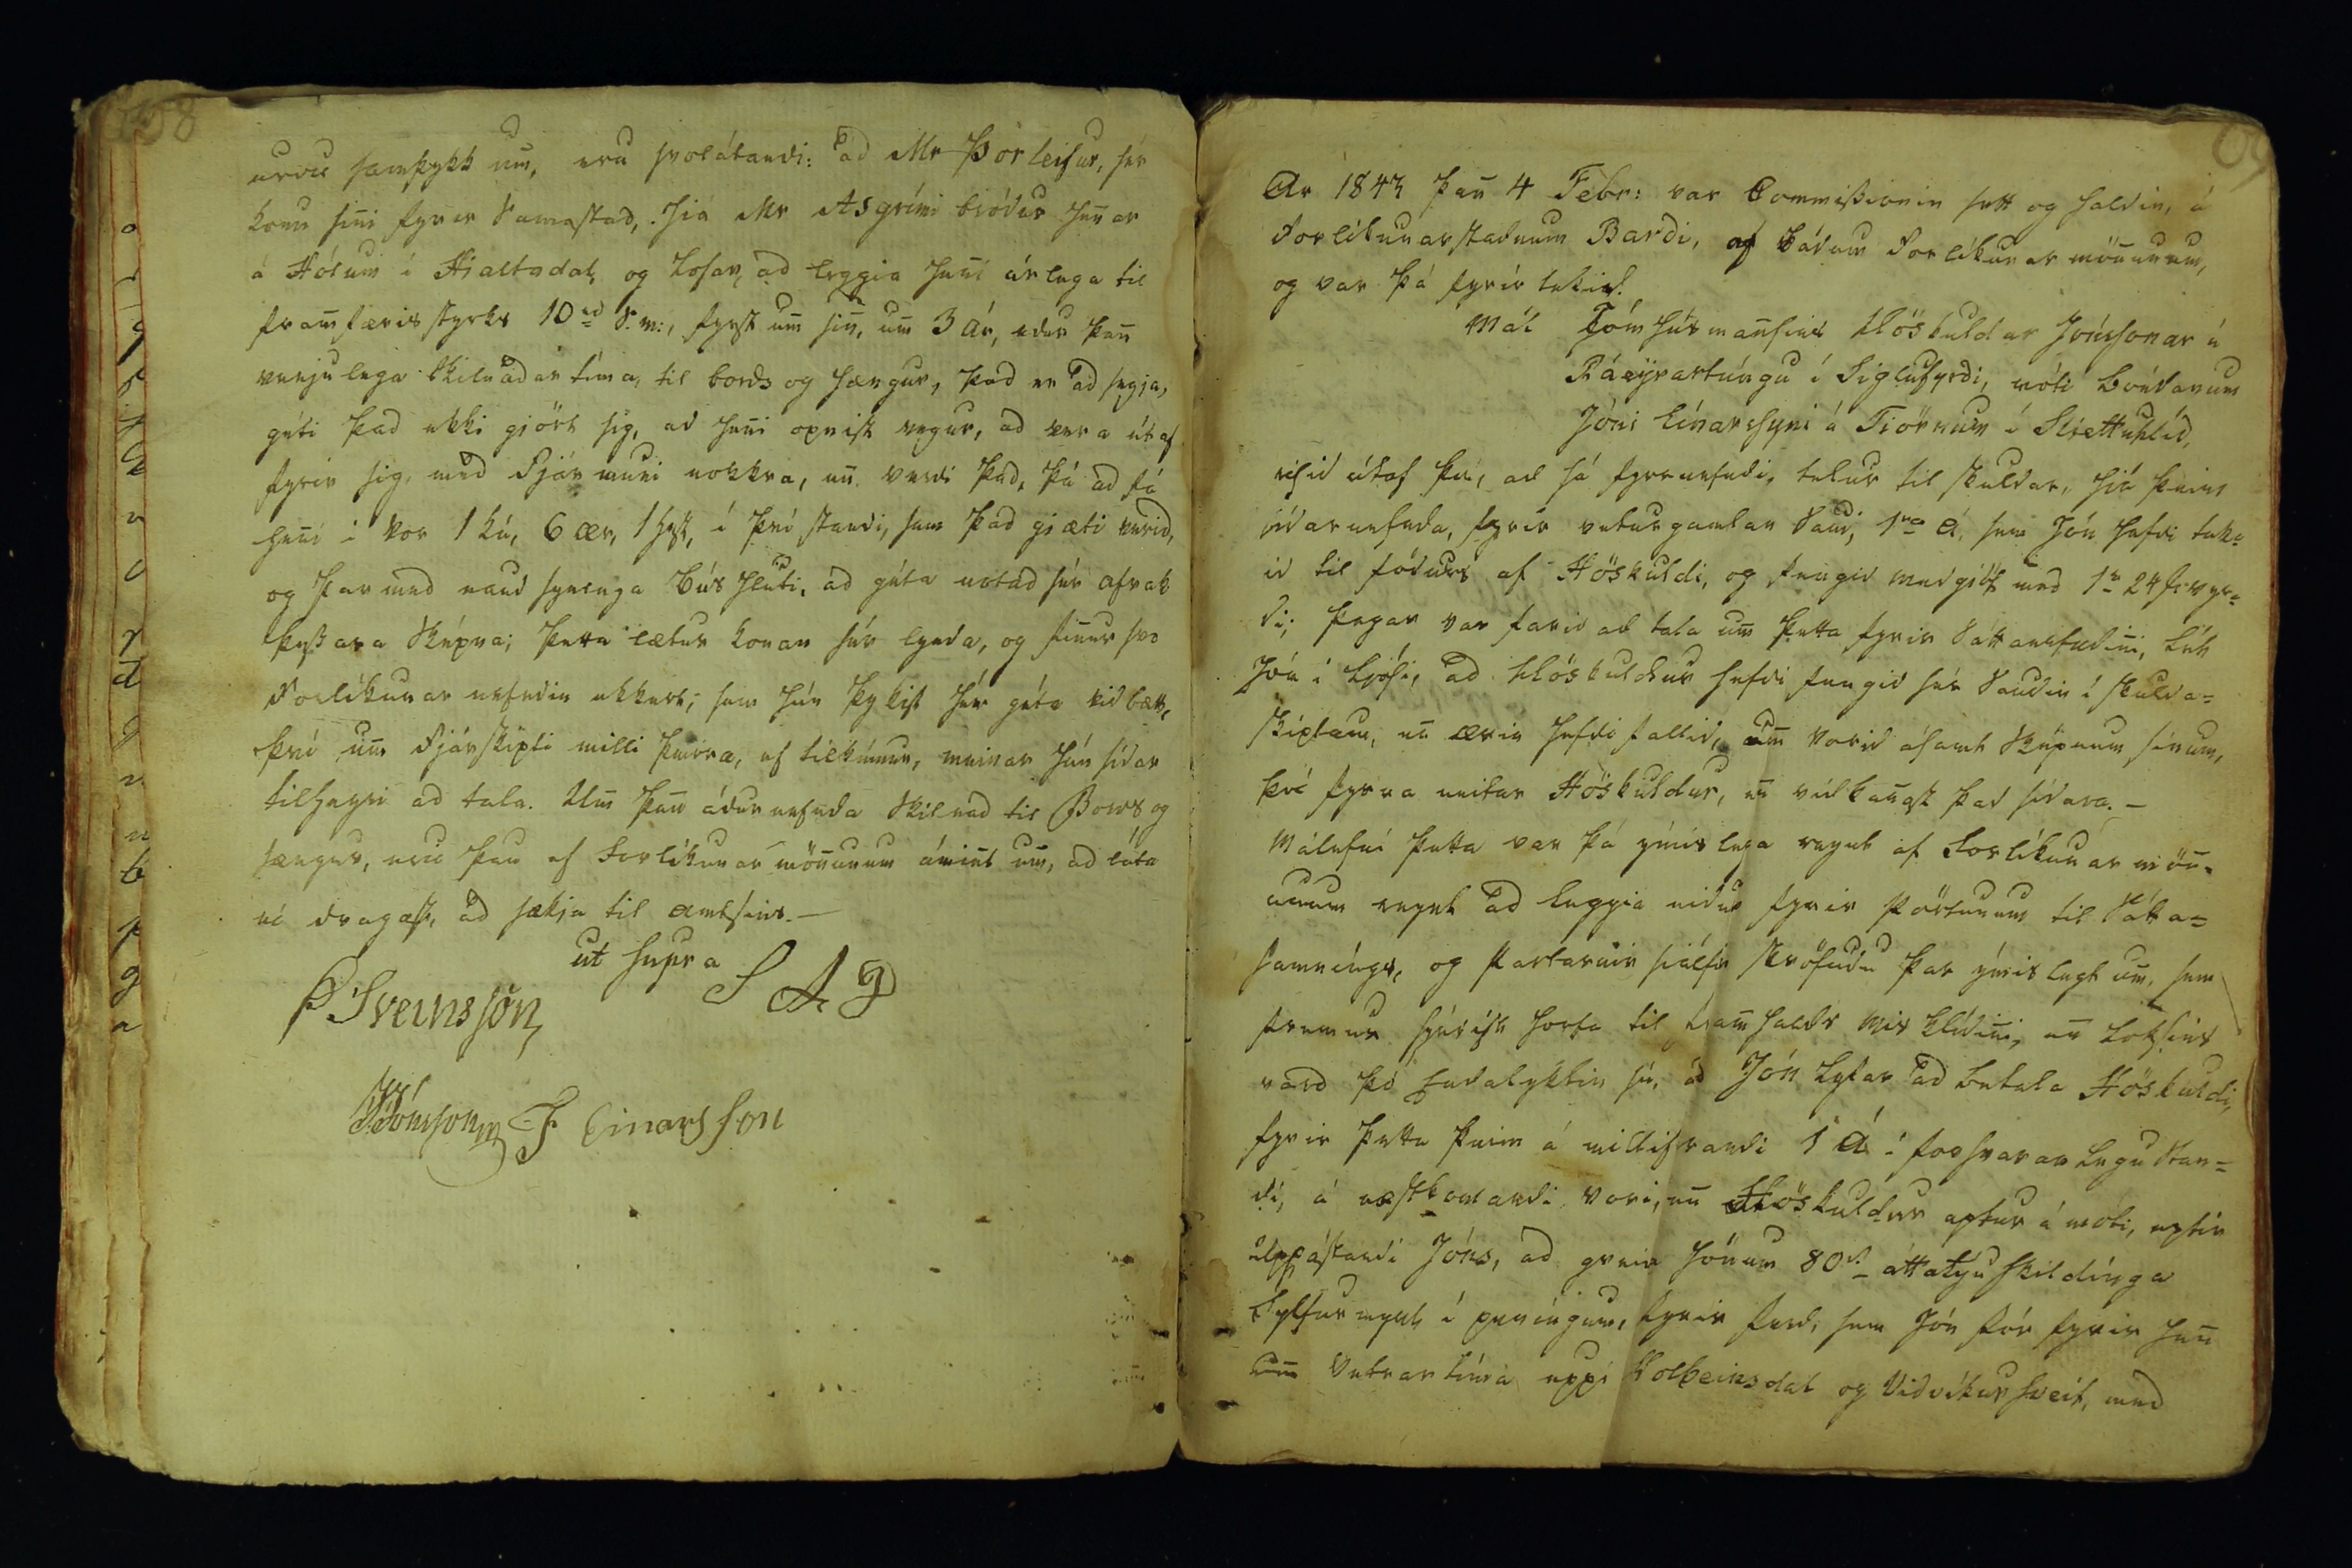 58
urdu samþykk um, eru svolátandi: ad Mr Þorleifur, fær
konu sinni fyrir Samastad, hiá Mr Asgrími bródur hennar
á Hólum í Hialtadal, og lofar, ad leggia henni árlega til
framfæris styrks 10 rd S.m:, fyrst um sinn, um 3 Ár, edur þann
venjulega Skilnadar tíma, til bords og sængur, það er ad segja,
géti það ekki giört sig, ad henni opnist vegur, ad vera út af
fyrir sig, med Fjármuni nokkra, enn verdi það, þá ad fá
henni í vor 1 kú, 6 ær, 1 hest, í því standi, sem það giæti verid,
og þar med naudsynlega Bús hluti, ad géta notad sér afrak
þessara Sképna; þetta lætur konan sér lynda, og finnur svo
Forlíkunar nefndin ekkert, sem hún þykist hér géta vid bætt,
því um Fjárskipti milli þeirra, ef tilkémur, meinar hún sídar
tilheyri ad tala. Um þann ádurnefnda Skilnad til Bords og
sængur, eru þau af Forlíkunar mönnunum ámint um, ad láta
ei dragast, ad sækja til amtsins. —
ut supra
Þ Sveinsson
S A D
J Jónsson
F Einarsson
69
Ár 1843 þann 4 Febr: var Commissionin sett og haldin, á
Forlíkunarstadnum Bardi, af bádum Forlíkunar mönnunum,
og var þá fyrir tekid.
Mál Tómthúsmannsins Höskuldar Jónssonar á
Ráeyrartúngu í Siglufyrdi, móti bóndanum
Jóni Einarssyni á Tiörnum í Sléttuhlíd,
risid útaf því, ad sá fyrrnefndi, telur til skuldar, hiá þeim
sídarnefnda, fyrir veturgamlan Saud, 1 á, sem Jón hafdi tek-
id til fódurs af Höskuldi, og fengid medgift med 1 24 s: vyr-
di; þegar var farid ad tala um þetta fyrir Sáttanefndinni, lét
Jón í ljósi, ad Höskuldur hefdi fengid sér Saudin í skulda-
skiptum, en ærin hefdi fallid, um vorid ásamt Sképnum sínum,
því fyrra neitar Höskuldur, enn vidkannast það sídara. —
Málefni þetta var þá ýmislega reynt af Forlíkunar mön-
nunum reynt ad leggia nidur fyrir Pörtunum til Sátta-
samníngs, og Partarnir siálfir skröfudu þar ýmislegt um, sem
fremur sýndist horfa til framhalds misklídinni, en loksins
vard þó Endalyktin sú, ad Jón lofar ad betala Höskuldi,
fyrir þetta þeim á millifarandi 1 Á í forsvaranlegu Stan-
di, á næstkomandi vori, en Höskuldur aptur á móti, eptir
uppástandi Jóns, ad greia hönum 80 s. áttatyu skildínga
Sylfurmynt í peníngum, fyrir ferd, sem Jón fór fyrir hann
um Vetrartíma uppí Kolbeinsdal og Vidvíkursveit, med